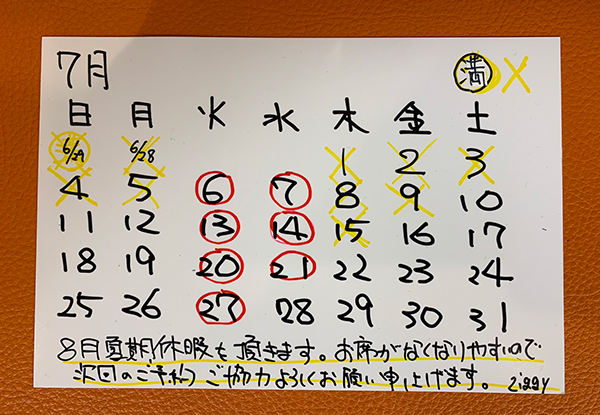 7月 満 X
日 月 火 水 木 金 土
6/29 6/28 1 2 3
4 5 6 7 8 9 10
11 12 13 14 15 16 17
18 19 20 21 22 23 24
25 26 27 28 29 30 31
8月夏期休暇も頂きます。お席がなくなりやすいので
次回のご予約ご協力よろしくお願い申上げます。 ziggy